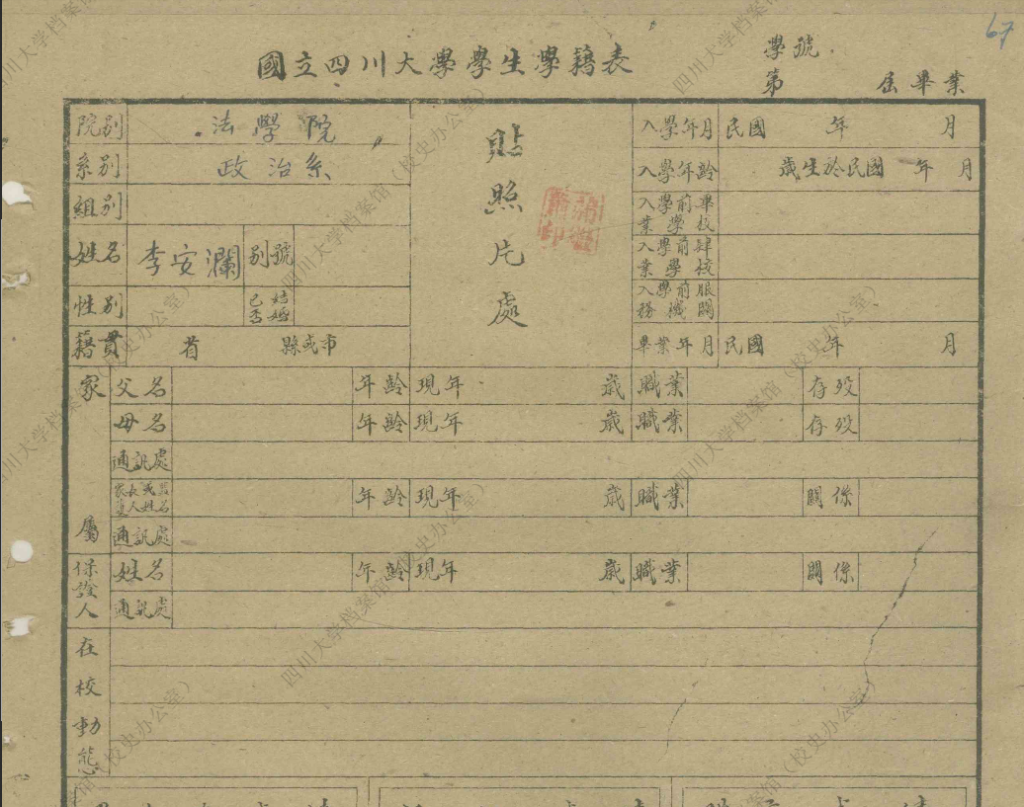 67
國立四川大學學生學籍表
學號
第 屆畢業
院別 法學院
系別 政治系
組別
姓名 李安瀾 別號
性別 已否結婚
籍貫 省 縣或市
貼照片處
入學年月 民國 年 月
入學年齡 歲生於民國 年 月
入學前畢業學校
入學前肄業學校
入學前服務機關
畢業年月 民國 年 月
家屬
父名 年齡 現年 歲 職業 存歿
母名 年齡 現年 歲 職業 存歿
通訊處
年齡 現年 歲 職業 關係
通訊處
保證人
姓名 年齡 現年 歲 職業 關係
通訊處
在校動態
四川大学档案馆（校史办公室）